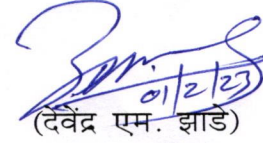 01/2/23
(देवेंद्र एम. झाडे)